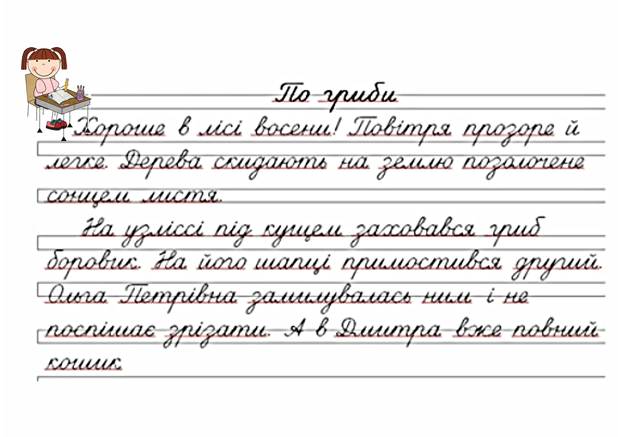 По гриби
Хороше в лісі восени! Повітря прозоре й
легке. Дерева скидають на землю позолочене
сонцем листя.
На узліссі під кущем заховався гриб
боровик. На його шапці примостився другий.
Ольга Петрівна замилувалась ним і не
поспішає зрізати. А в Дмитра вже повний
кошик